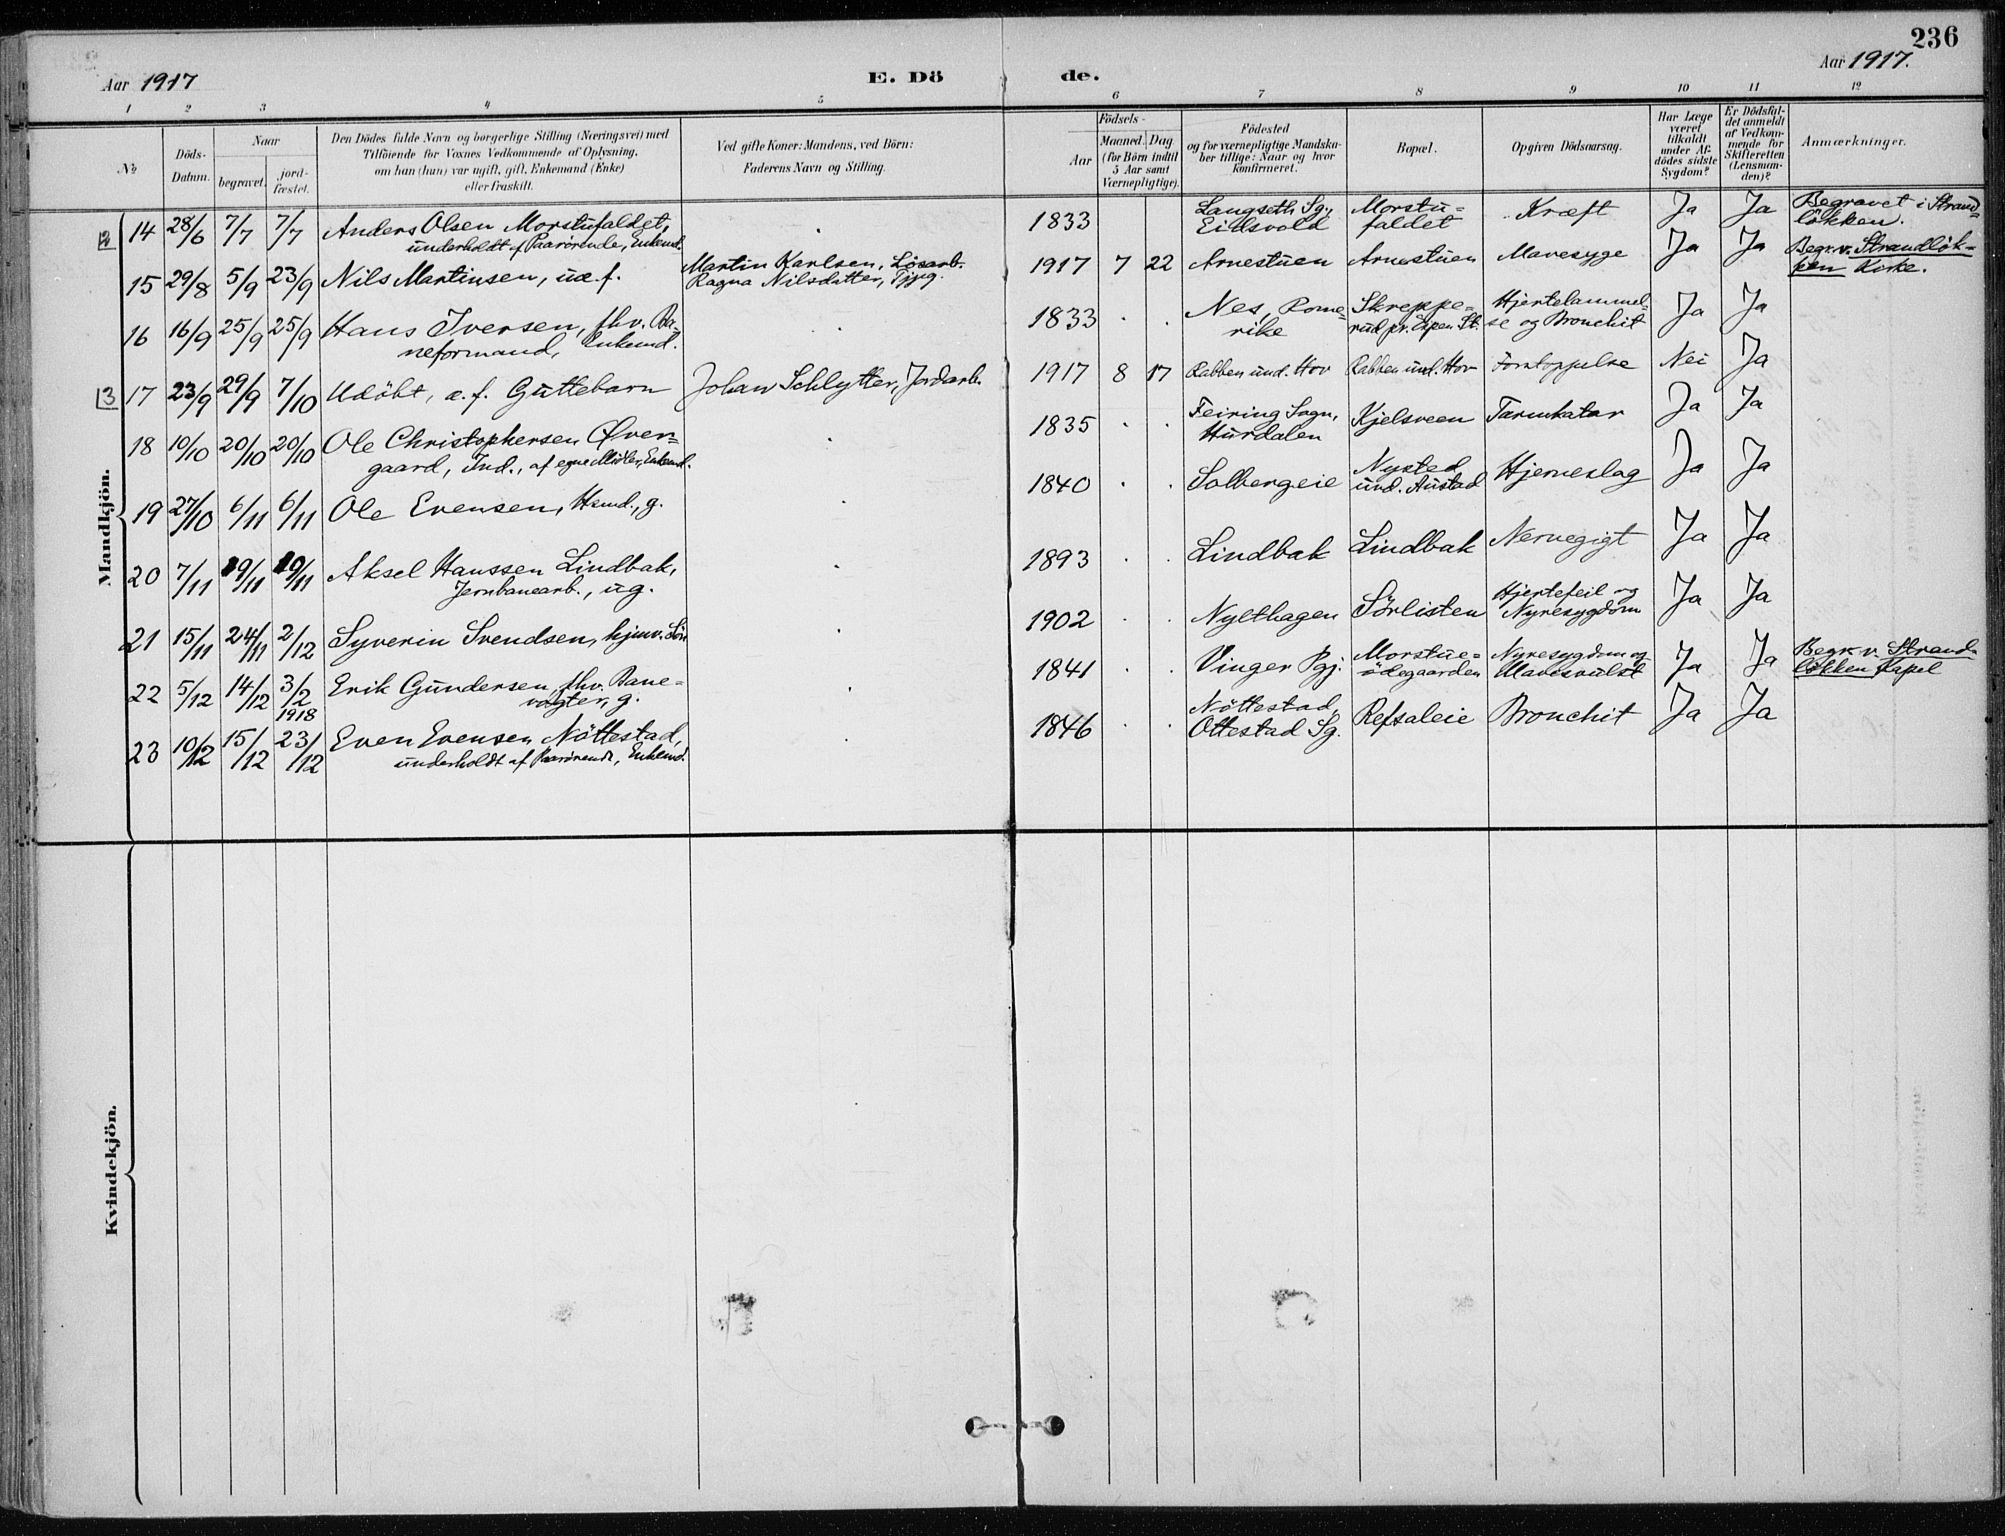 236
Aar 1917
E. Dö
de.
Aar 1917.
1 2 3 4 5 6 7 8 9 10 11 12
No.
Döds-Datum.
Naar
begravet.
jord-fæstet.
Den Dödes fulde Navn og borgerlige Stilling (Næringsvei) med
Tilföiende for Voxnes Vedkommende af Oplysning,
om han (hun) var ugift, gift, Enkemand (Enke)
eller fraskilt.
Ved gifte Koner: Mandens, ved Börn:
Faderens Navn og Stilling.
Födsels-
Aar
Maaned. Dag
(for Börn indtil
5 Aar samt
Værnepligtige).
Födested
og for værnepligtige Mandska-
ber tillige: Naar og hvor
konfirmeret.
Bopæl.
Opgiven Dödsaarsag.
Har Læge
været
tilkaldt
under Af-
dödes sidste
Sygdom?
Er Dödsfal-
det anmeldt
af Vedkom-
mende for
Skifteretten
(Lensman-
den)?
Anmærkninger.
Mandkjön.
12 14 28/6 7/7 7/7 Anders Olsen Morstufaldet, 1833 Langseth Sg., Morstu- Kræft Ja Ja Begravet i Strand-
underholdt af Paarørende, Enkemd. Eidsvold faldet løkken.
15 29/8 5/9 23/9 Nils Martinsen, u.æ.f. Martin Karlsen, Løsarb. 1917 7 22 Arnestuen Arnestuen Mavesyge Ja Ja Begr. v. Strandløk-
Ragna Nilsdatter, Tjpg. ken Kirke.
16 16/9 25/9 25/9 Hans Iversen, fhv. Ba- 1833 . . Nes, Rome- Skreppe- Hjertelammel- Ja Ja
neformand, Enkemd. rike rud pr. Espen St. se og Bronchit
13 17 23/9 29/9 7/10 Udöbt, æ. f. Guttebarn Johan Schlytter, Jordarb. 1917 8 17 Rabben und. Hov Rabben und. Hov Forstoppelse Nei Ja
18 10/10 20/10 20/10 Ole Christophersen Øver- 1835 . . Feiring Sogn, Kjelsveen Tarmkatar Ja Ja
gaard, Ind., af egne Midler, Enkemd. Hurdalen
19 27/10 6/11 6/11 Ole Evensen, Hsmd., g. 1840 . . Solbergeie Nysted Hjerneslag Ja Ja
und. Austad
20 7/11 19/11 19/11 Aksel Hanssen Lindbak, 1893 . . Lindbak Lindbak Nervegigt Ja Ja
Jernbanearb., ug.
21 15/11 24/11 2/12 Syverin Svendsen, hjmv. Søn 1902 . . Nylthagen Sørlisten Hjertefeil og Ja Ja
Nyresygdom
22 5/12 14/12 3/2 1918 Erik Gundersen, fhv. Bane- 1841 . . Vinger Pgj. Morstue- Nyresygdom og Ja Ja Begr. v. Strand-
vogter, g. ødegaarden Mavesvulst løkken Kapel
23 10/12 15/12 23/12 Even Evensen Nöttestad, 1846 . . Nöttestad, Refsaleie Bronchit Ja Ja
underholdt af Paarørende, Enkemd. Ottestad Sg.
Kvindekjön.